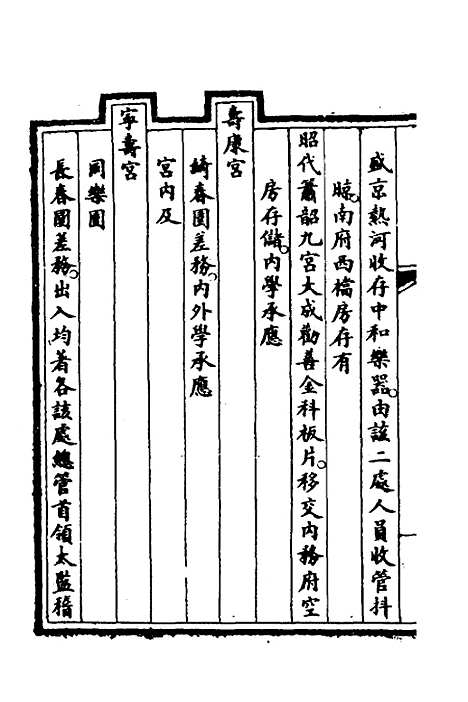 盛京熱河收存中和樂器。由該二處人員收管抖
晾。南府西檔房存有
昭代簫韶九宮大成勸善金科板片。移交內務府空
房存儲。內學承應
壽康宮
綺春園差務。內外學承應
寧壽宮
宮內及
同樂園
長春園差務。出入均著各該處總管首領太監稽